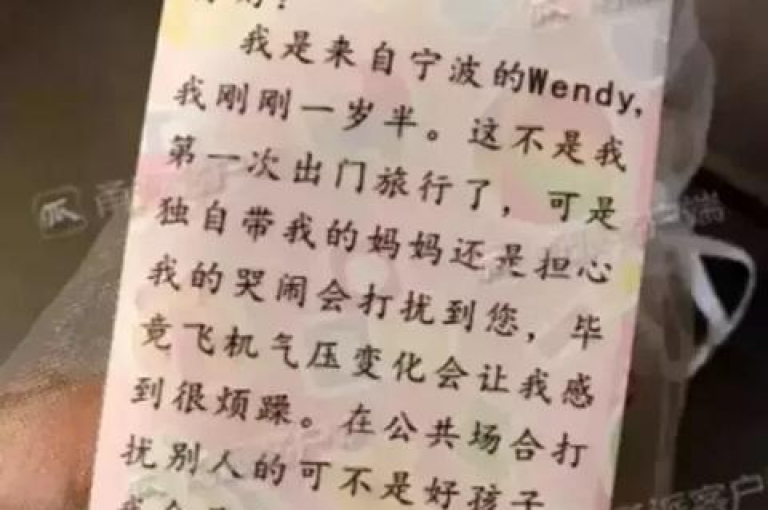 我是来自宁波的Wendy,
我刚刚一岁半。这不是我
第一次出门旅行了，可是
独自带我的妈妈还是担心
我的哭闹会打扰到您，毕
竟飞机气压变化会让我感
到很烦躁。在公共场合打
扰别人的可不是好孩子